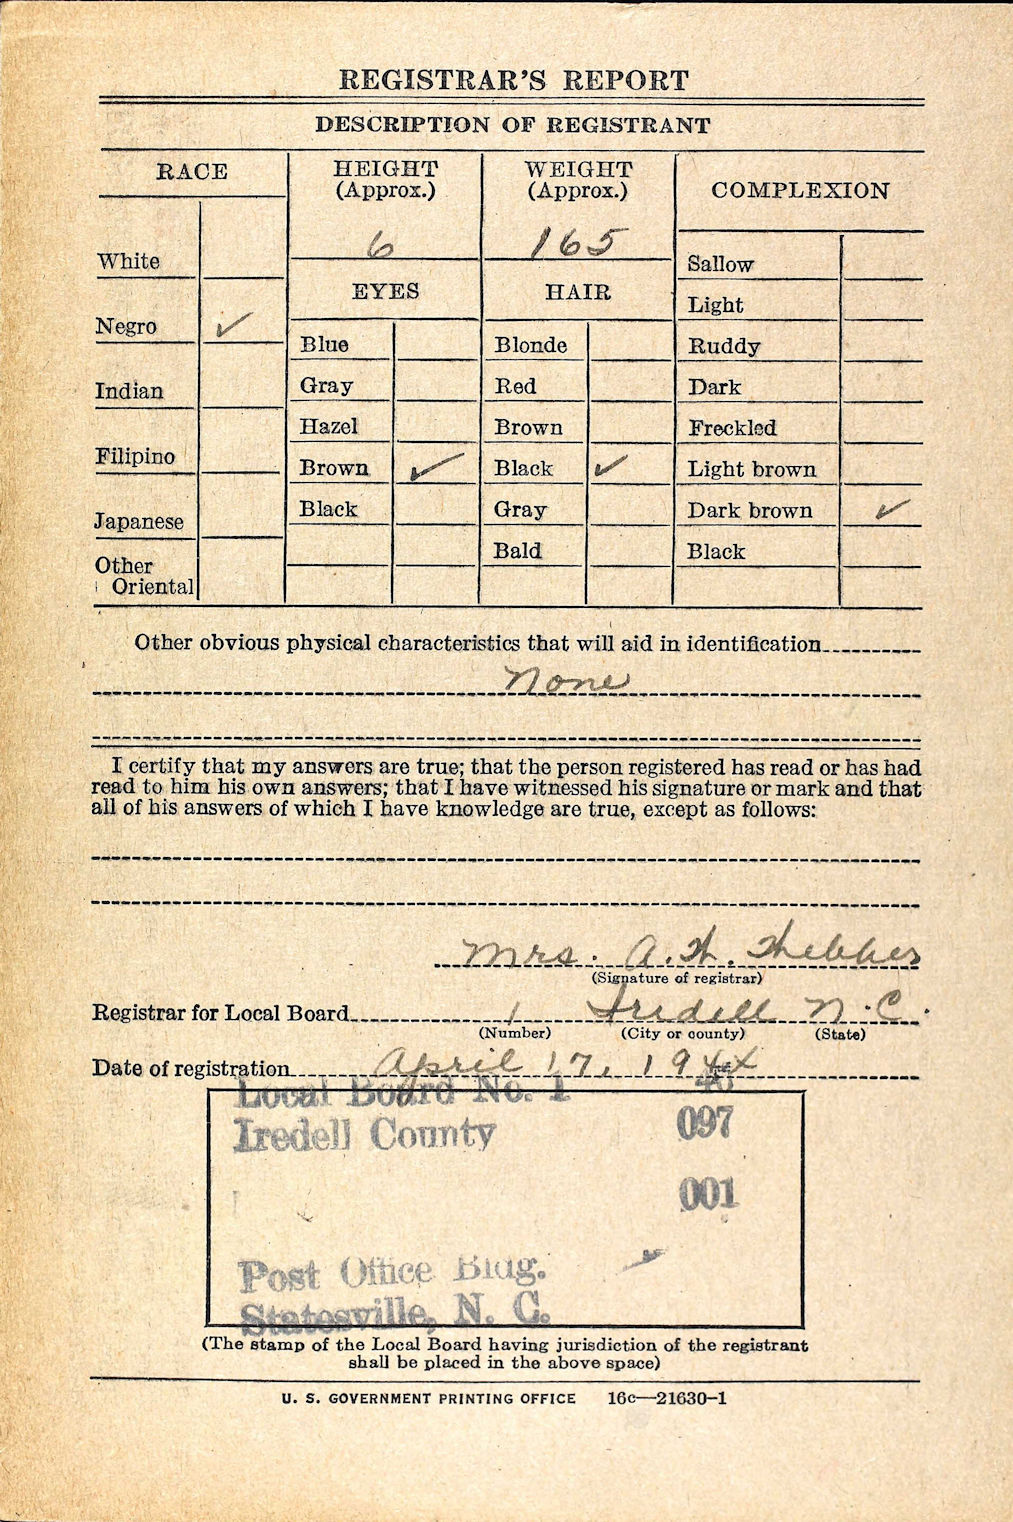 REGISTRAR'S REPORT
DESCRIPTION OF REGISTRANT
RACE
HEIGHT
(Approx.)
WEIGHT
(Approx.)
COMPLEXION
6
165
White
Sallow
EYES
HAIR
Light
Negro ✓
Blue
Blonde
Ruddy
Indian
Gray
Red
Dark
Hazel
Brown
Freckled
Filipino
Brown ✓
Black ✓
Light brown
Japanese
Black
Gray
Dark brown ✓
Other
Oriental
Bald
Black
Other obvious physical characteristics that will aid in identification
None
I certify that my answers are true; that the person registered has read or has had
read to him his own answers; that I have witnessed his signature or mark and that
all of his answers of which I have knowledge are true, except as follows:
Mrs. A.
(Signature of registrar)
Registrar for Local Board 1 Iredell N.C.
(Number) (City or county) (State)
Date of registration April 17, 1944
Local Board No. 1
Iredell County 097
001
Post Office Bldg.
Statesville, N. C.
(The stamp of the Local Board having jurisdiction of the registrant
shall be placed in the above space)
U. S. GOVERNMENT PRINTING OFFICE 16c—21630-1